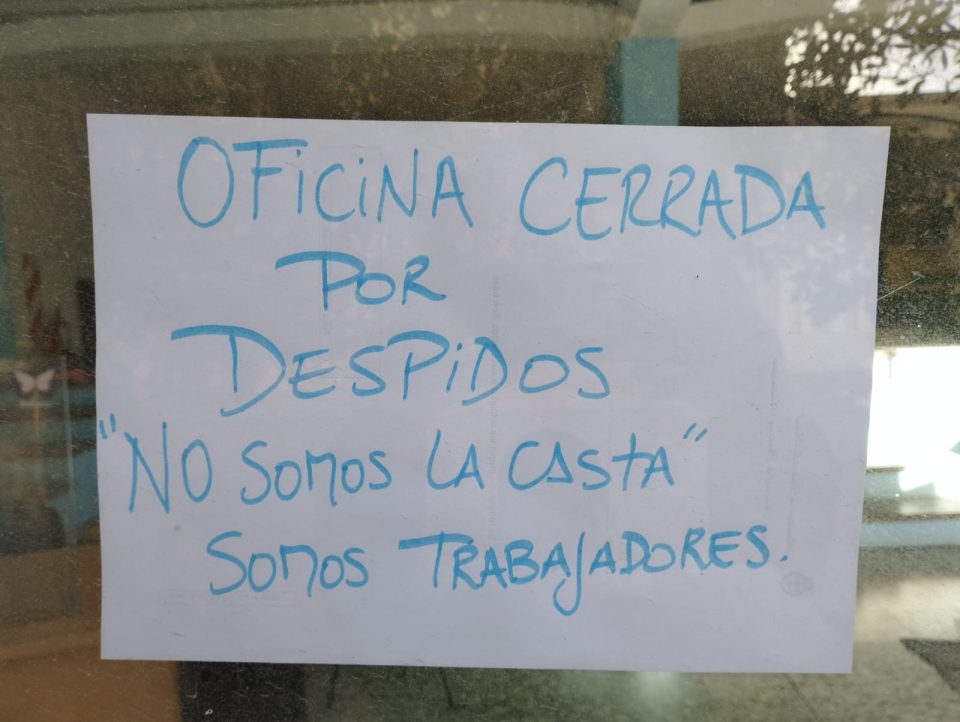 OFiCiNA CERRADA
POR
DESPiDOS
"NO SOMOS LA CASTA"
SOMOS TRABAJADORES.